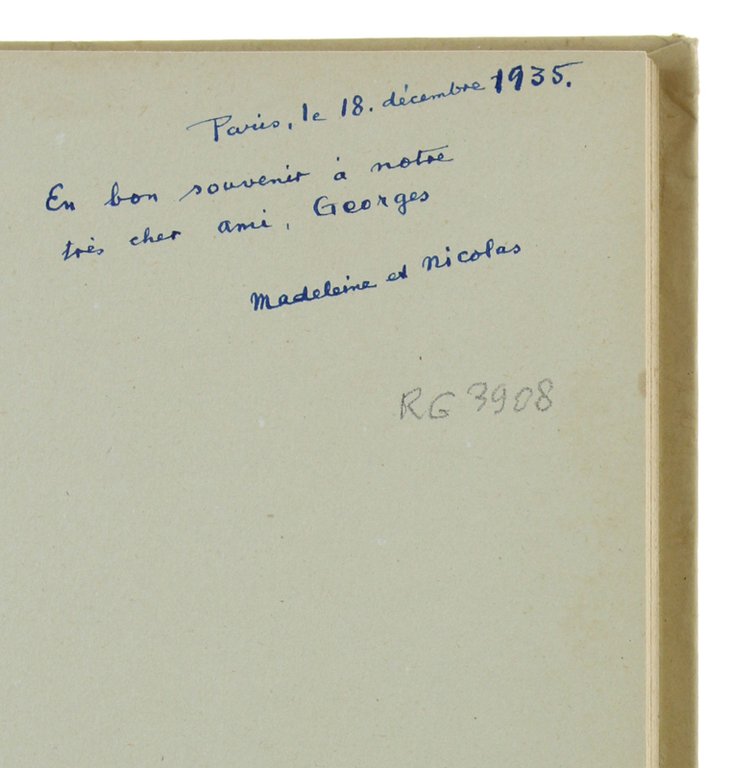 Paris, le 18. décembre 1935.
En bon souvenir à notre
très cher ami, Georges
Madeleine et Nicolas
RG 3908